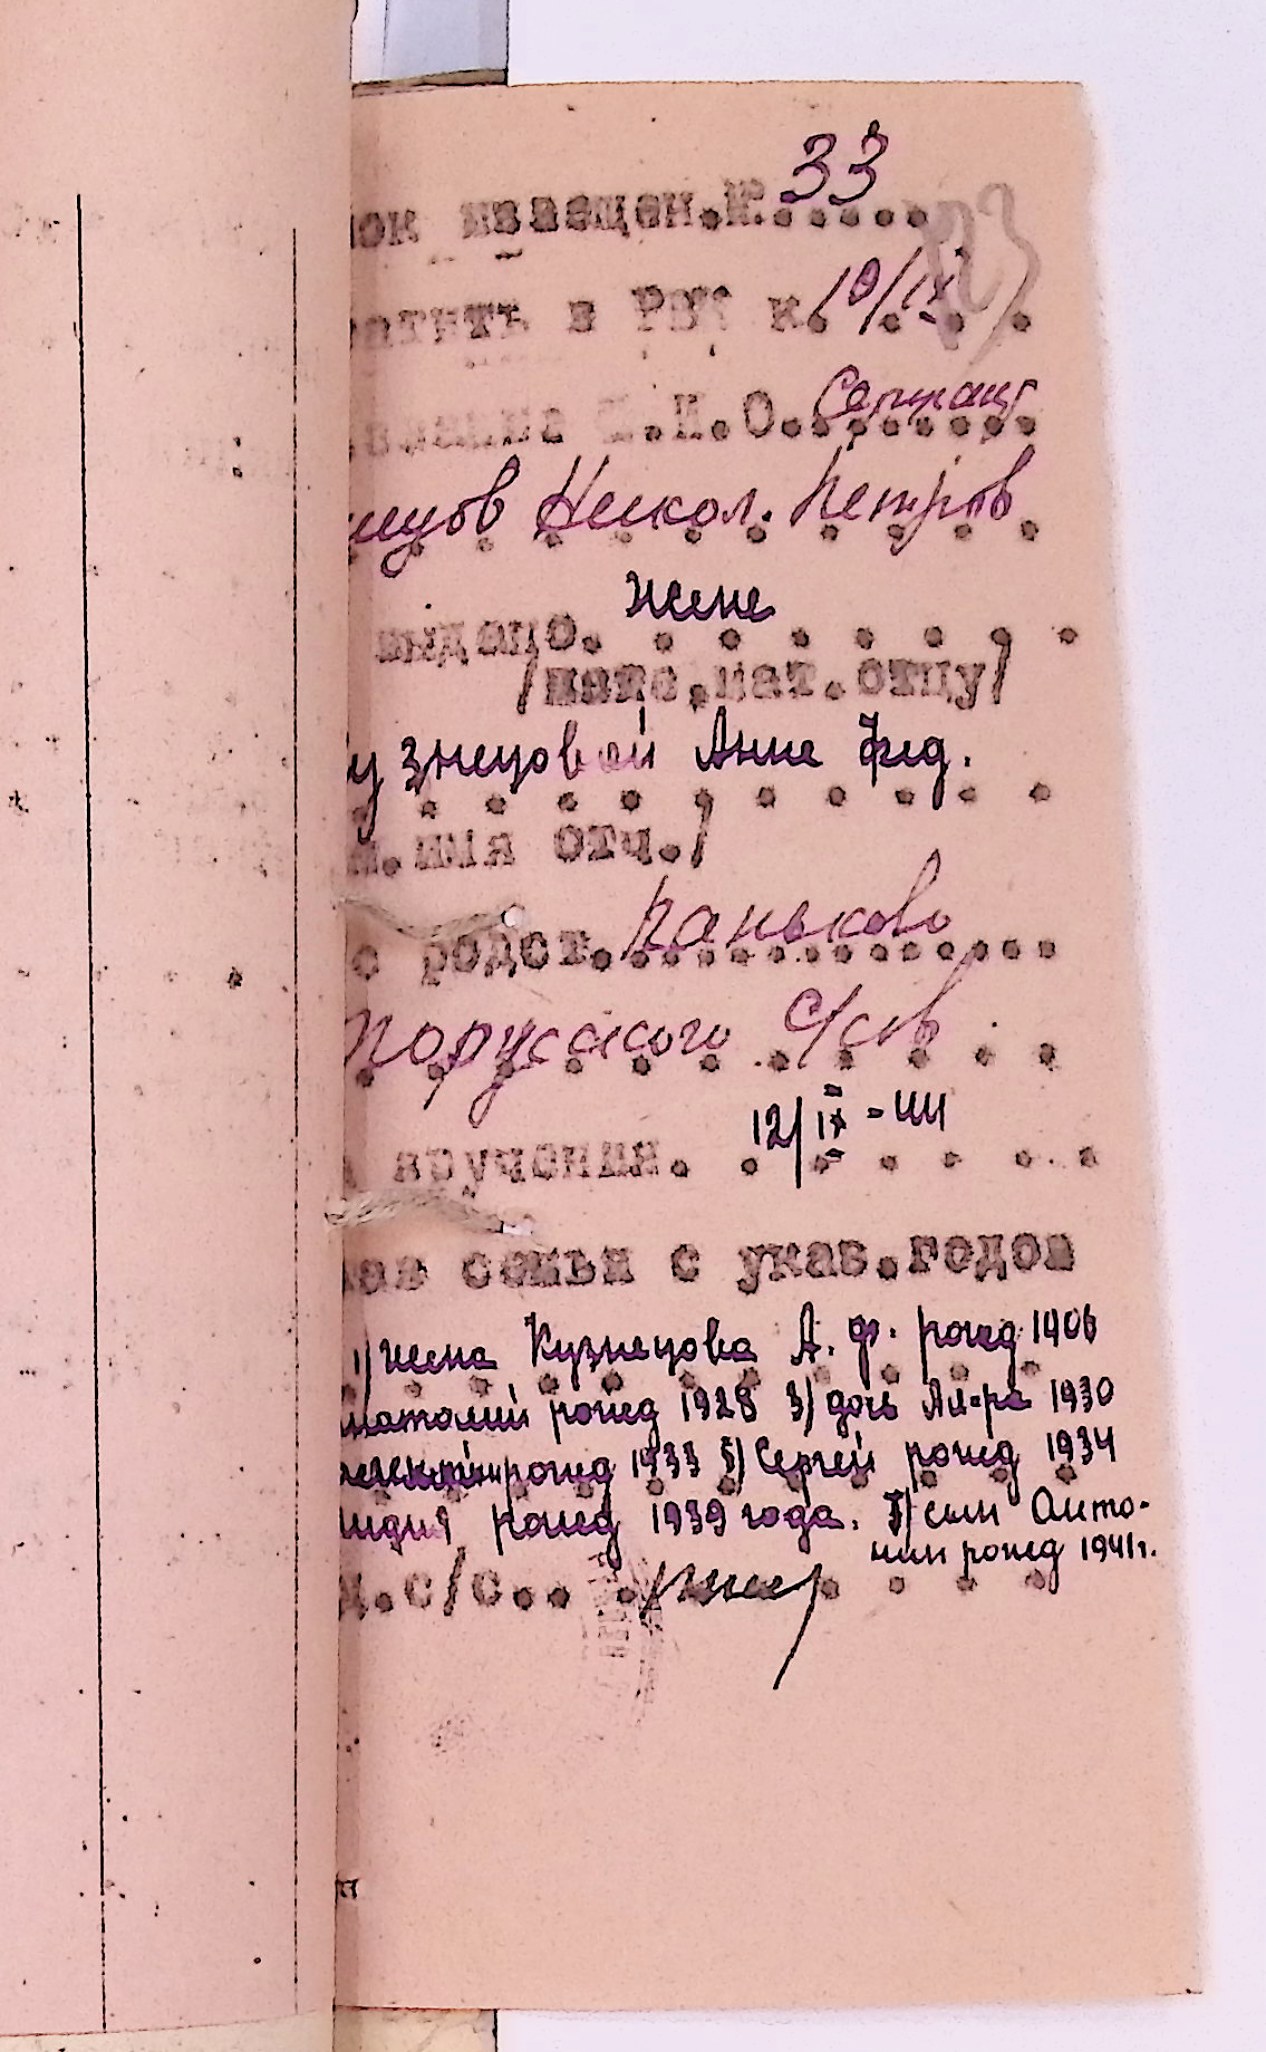 ок извещен.№ 33
атить в РВК к. 10/IX
звание Ф.И.О. Сержант
нецов Никол. Петров
выдано. жене
/жене,мат.отцу/
узнецовой Анне Фед.
м.имя отч./
о родст. Паньково
торусского с/сов
вручения. 12/IX-44
ав семьи с указ.годов
1) жена Кузнецова А. Ф. рожд 1906
натолий рожд 1928 3) дочь Ал-ра 1930
рожд 1933 5) Сергей рожд 1934
идия рожд 1939 года. 7) сын Анто-
нин рожд 1941г.
д.с/с..